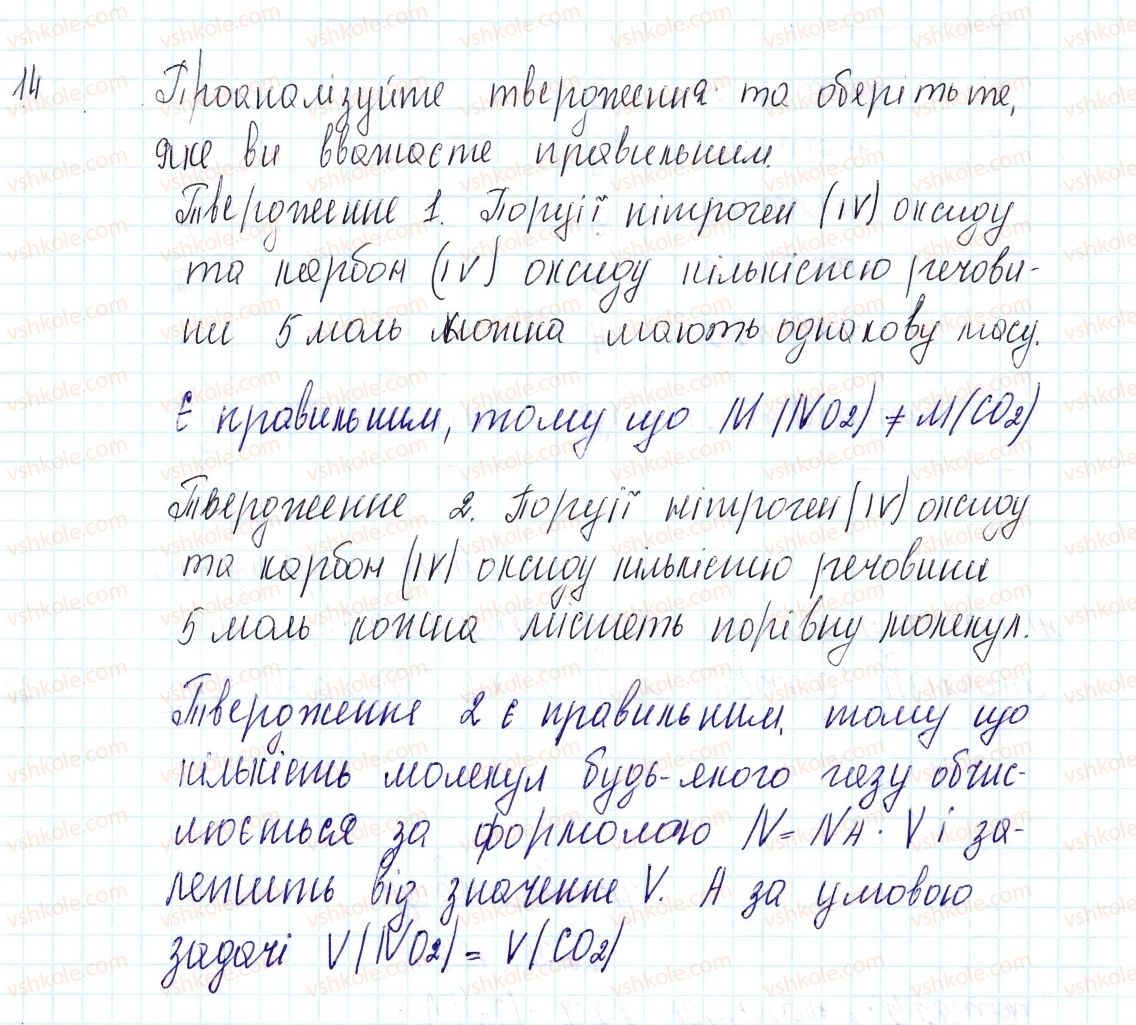 14 Проаналізуйте твердження та оберіть те,
яке ви вважаєте правильним.
Твердження 1. Порції нітроген (IV) оксиду
та карбон (IV) оксиду кількістю речови-
ни 5 моль кожна мають однакову масу.
Є правильним, тому що M(NO2) ≠ M(CO2)
Твердження 2. Порції нітроген (IV) оксиду
та карбон (IV) оксиду кількістю речовини
5 моль кожна містять порівну молекул.
Твердження 2 є правильним, тому що
кількість молекул будь-якого газу обчис-
люється за формолою N = NA · V і за-
лежить від значення V. А за умовою
задачі V(NO2) = V(CO2)